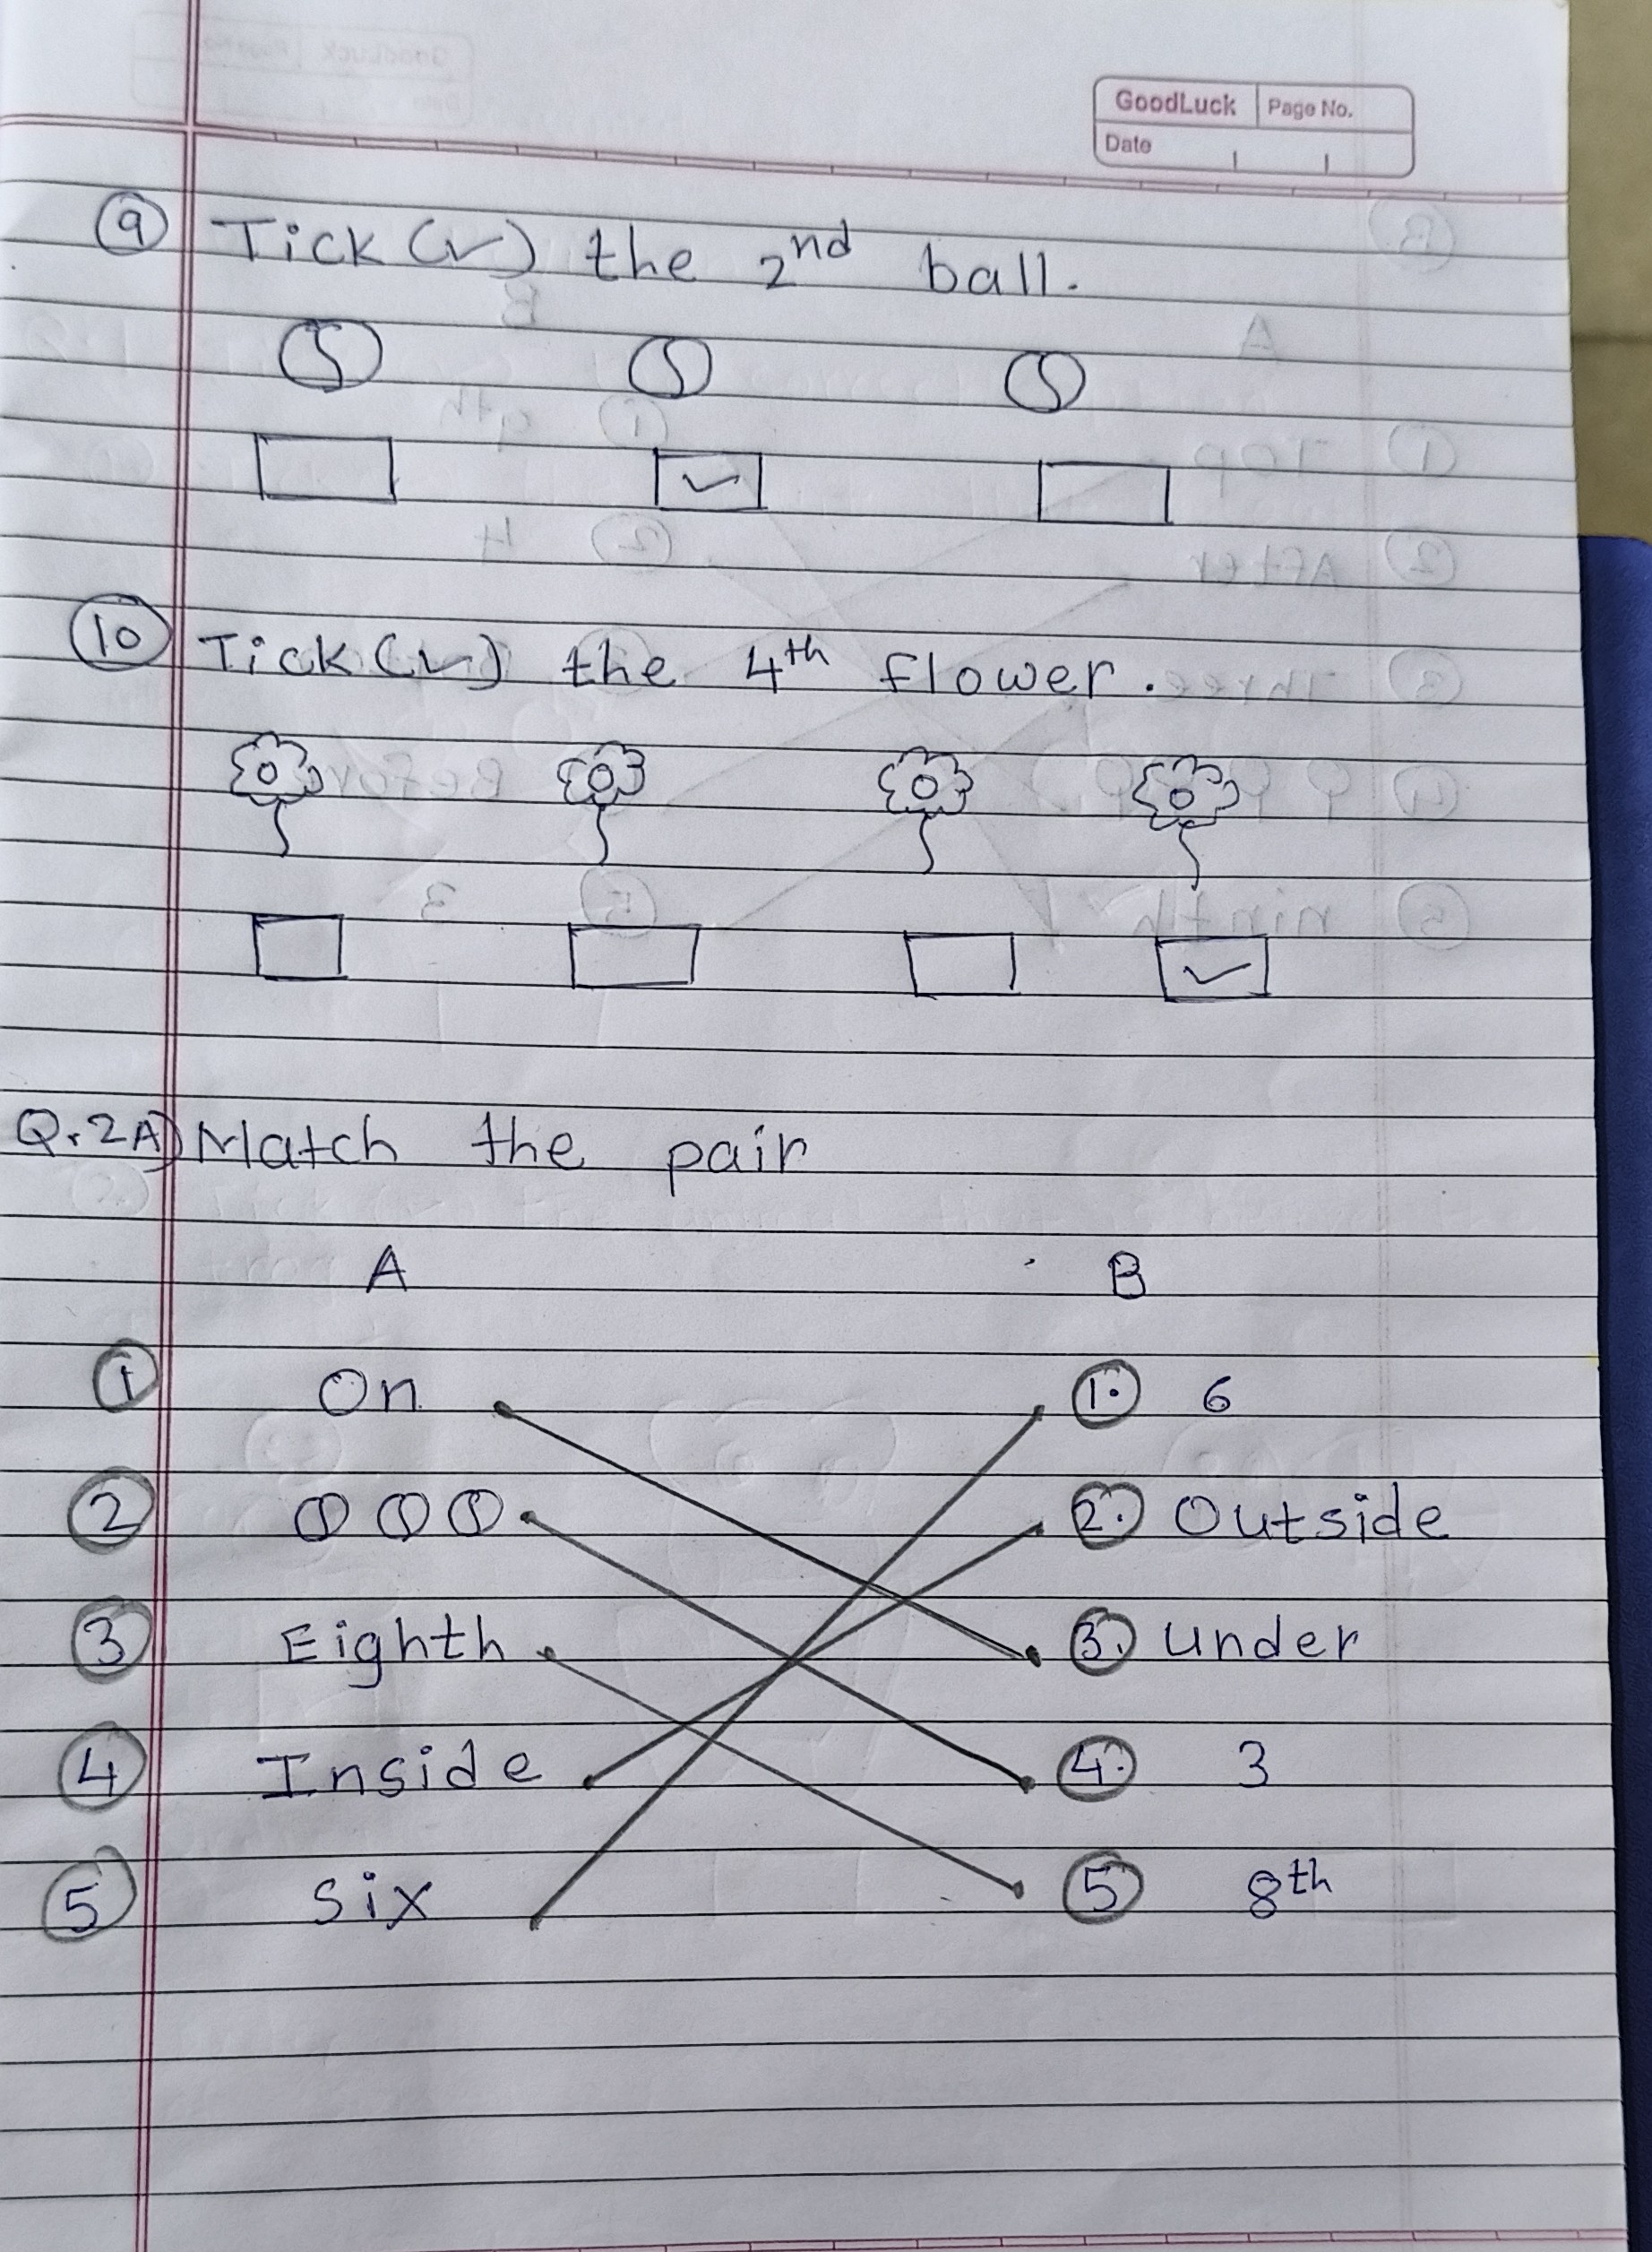 GoodLuck Page No.
Date
9 Tick (✓) the 2nd ball.
✓
10 Tick (✓) the 4th flower.
✓
Q.2A) Match the pair
A B
1 On 1. 6
2 2. Outside
3 Eighth 3. under
4 Inside 4. 3
5 Six 5 8th